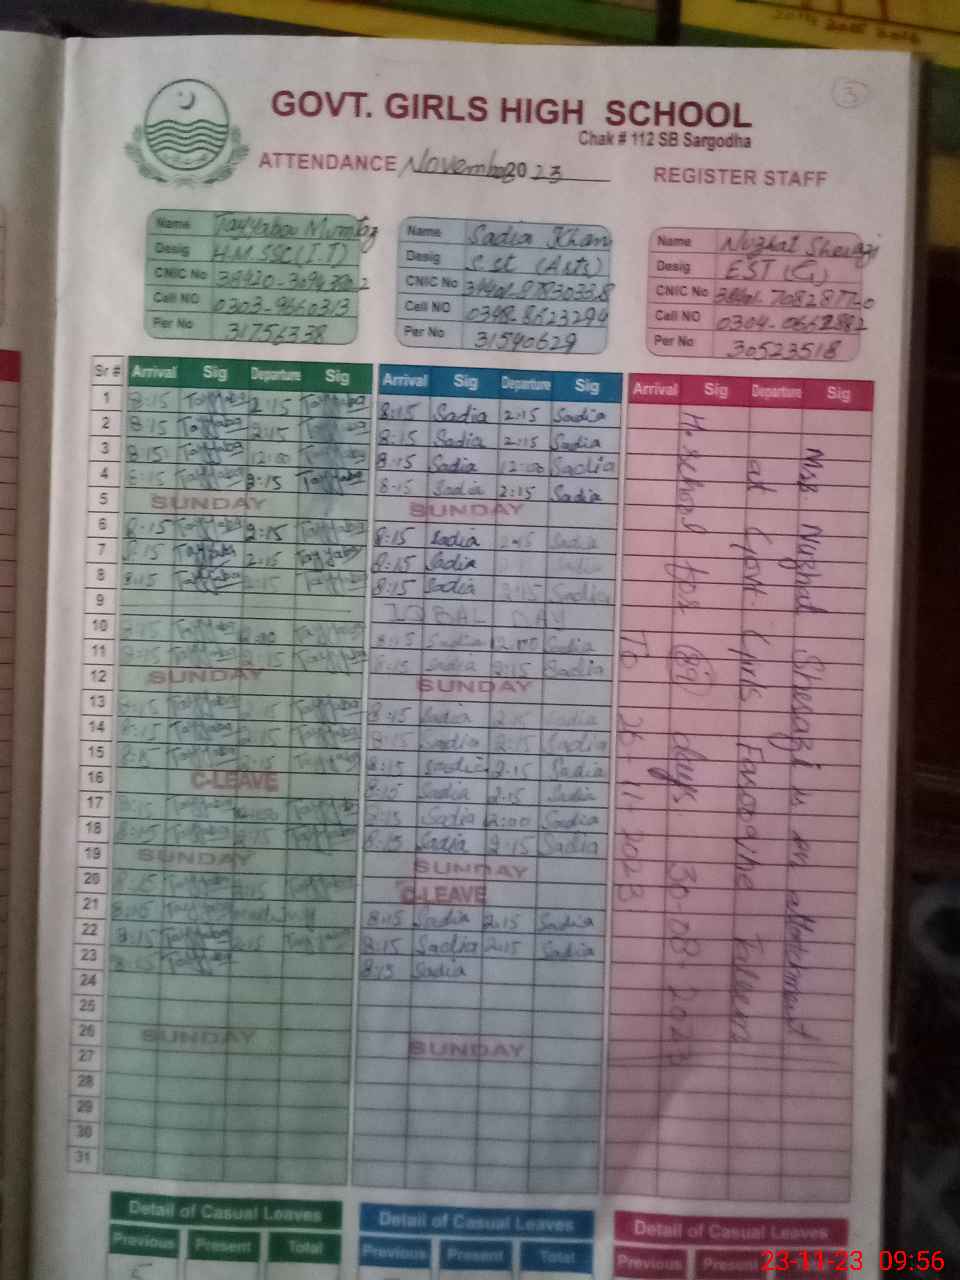 3
GOVT. GIRLS HIGH SCHOOL
Chak # 112 SB Sargodha
ATTENDANCE November 2023 REGISTER STAFF
Name Tayyaba Mumtaz
Desig H.M SSC(I.T)
CNIC No
Cell NO 0303-9660313
Per No 31756338
Name Sadia Khan
Desig S.st (Arts)
CNIC No
Cell NO 0348-8623294
Per No 31590629
Name Nuzhat Sherazi
Desig EST (G)
CNIC No
Cell NO
Per No 30523518
Sr # Arrival Sig Departure Sig Arrival Sig Departure Sig Arrival Sig Departure Sig
1 8:15 Tayyaba 2:15 Tayyaba 8:15 Sadia 2:15 Sadia
2 8:15 Tayyaba 2:15 Tayyaba 8:15 Sadia 2:15 Sadia
3 8:15 Tayyaba 12:00 Tayyaba 8:15 Sadia 12:00 Sadia
4 8:15 Tayyaba 2:15 Tayyaba 8:15 Sadia 2:15 Sadia
5 SUNDAY SUNDAY
6 8:15 Tayyaba 2:15 Tayyaba 8:15 Sadia 2:15 Sadia
7 8:15 Tayyaba 2:15 Tayyaba 8:15 Sadia
8 8:15 Tayyaba 2:15 Tayyaba 8:15 Sadia 2:15 Sadia
9 IQBAL DAY
10 8:15 Tayyaba Tayyaba 8:15 Sadia 12:00 Sadia
11 8:15 Tayyaba 2:15 Tayyaba 8:15 Sadia 2:15 Sadia
12 SUNDAY SUNDAY
13 8:15 Tayyaba 2:15 Tayyaba 8:15 Sadia 2:15 Sadia
14 8:15 Tayyaba 2:15 Tayyaba 8:15 Sadia 2:15 Sadia
15 8:15 Tayyaba 2:15 Tayyaba 8:15 Sadia 2:15 Sadia
16 C-LEAVE 8:15 Sadia 2:15 Sadia
17 8:15 Tayyaba 12:00 Tayyaba 8:15 Sadia 12:00 Sadia
18 8:15 Tayyaba 2:15 Tayyaba 8:15 Sadia 2:15 Sadia
19 SUNDAY SUNDAY
20 8:15 Tayyaba 2:15 Tayyaba C-LEAVE
21 8:15 Tayyaba meeting 8:15 Sadia 2:15 Sadia
22 8:15 Tayyaba 2:15 Tayyaba 8:15 Sadia 2:15 Sadia
23 8:15 Tayyaba 8:15 Sadia
24
25
26 SUNDAY SUNDAY
27
28
29
30
31
Miss. Nuzhat Sherazi is on attachment
at Govt. Girls
H. School for days. 30.08.2023
To 26.11.2023
Detail of Casual Leaves Detail of Casual Leaves Detail of Casual Leaves
Previous Present Total Previous Present Total Previous Present
5
23-11-23 09:56